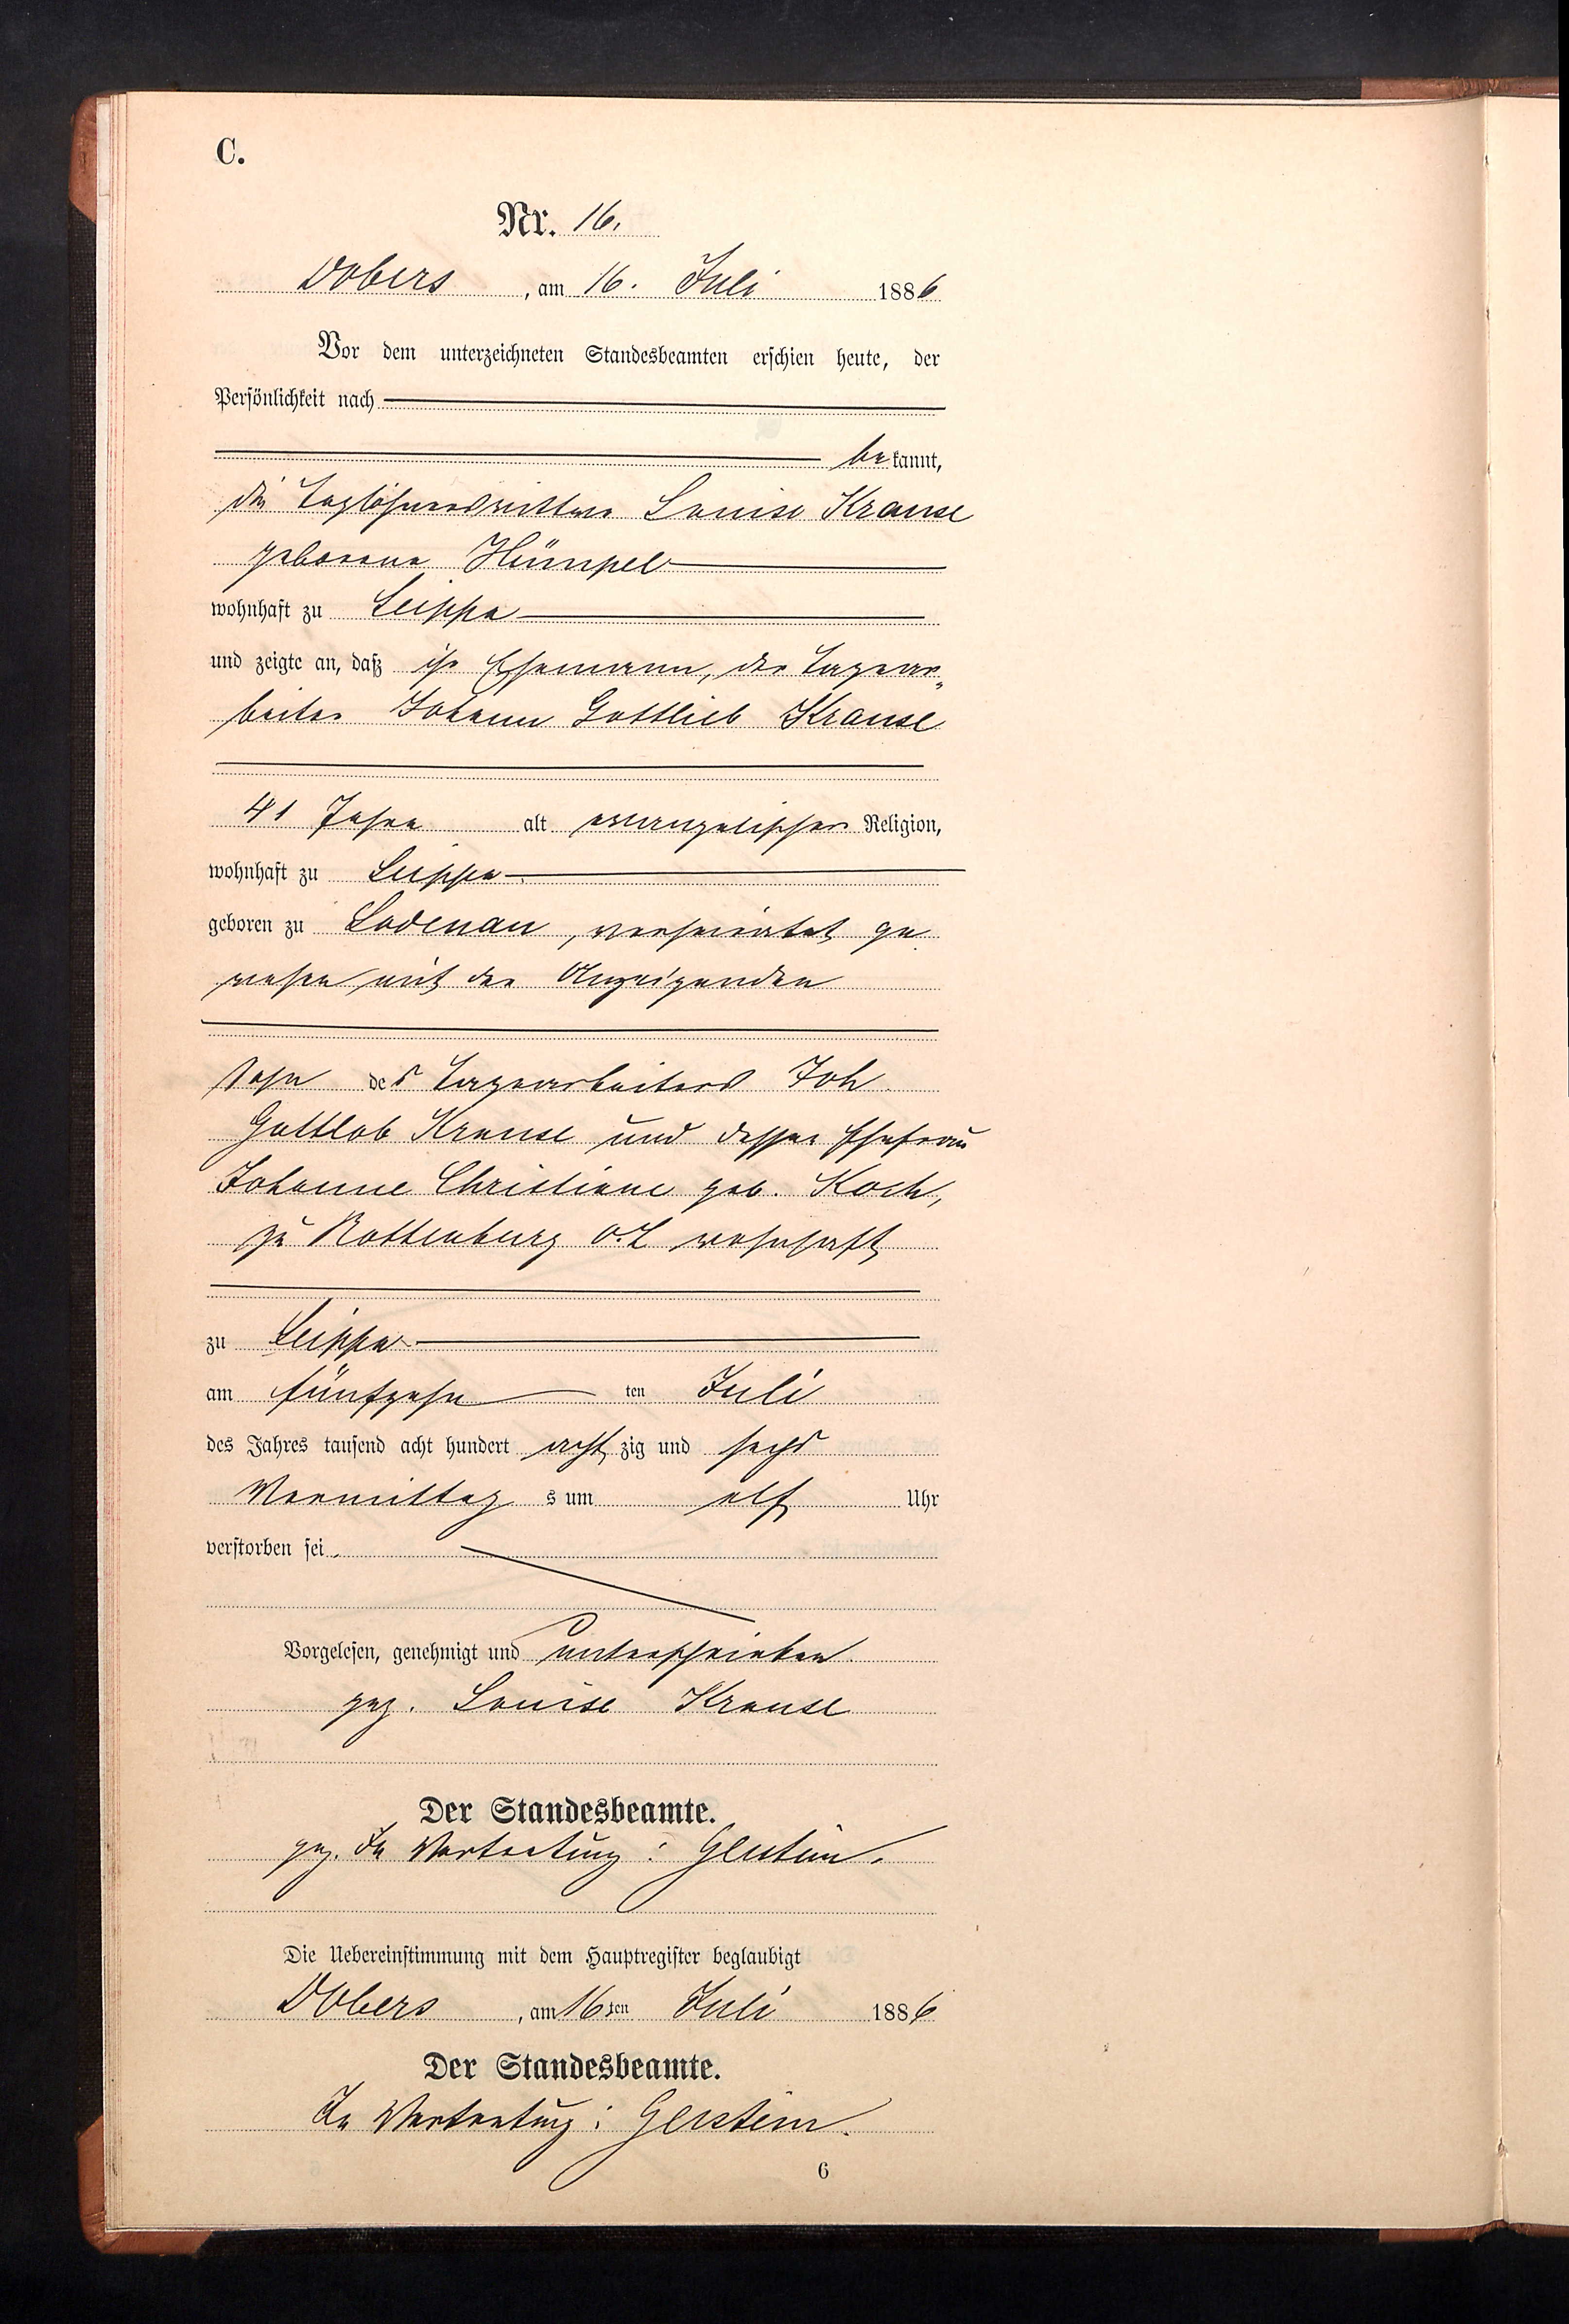 C.
Nr. 16.
Dobers, am 16. Juli 1886
Vor dem unterzeichneten Standesbeamten erschien heute, der
Persönlichkeit nach
bekannt,
die Taglöhnerswittwe Louise Krause
geborene Hümpel
wohnhaft zu Leippa
und zeigte an, daß ihr Ehemann, der Tagear-
beiter Johann Gottlieb Krause
41 Jahre alt evangelischer Religion,
wohnhaft zu Leippa
geboren zu Lodenau, verheirathet ge
wesen mit der Anzeigenden
Sohn des Tagearbeiters Joh
Gottlob Krause und dessen Ehefrau
Johanne Christiane geb. Koch,
zu Rottenburg O.L wohnhaft
zu Leippa
am fünfzehn ten Juli
des Jahres tausend acht hundert acht zig und sechs
Vormittag s um elf Uhr
verstorben sei
Vorgelesen, genehmigt und unterschrieben.
gez. Louise Krause
Der Standesbeamte.
gez. In Vertretung: Gerstein.
Die Uebereinstimmung mit dem Hauptregister beglaubigt
Dobers, am 16ten Juli 1886
Der Standesbeamte.
In Vertretung: Gerstein.
6